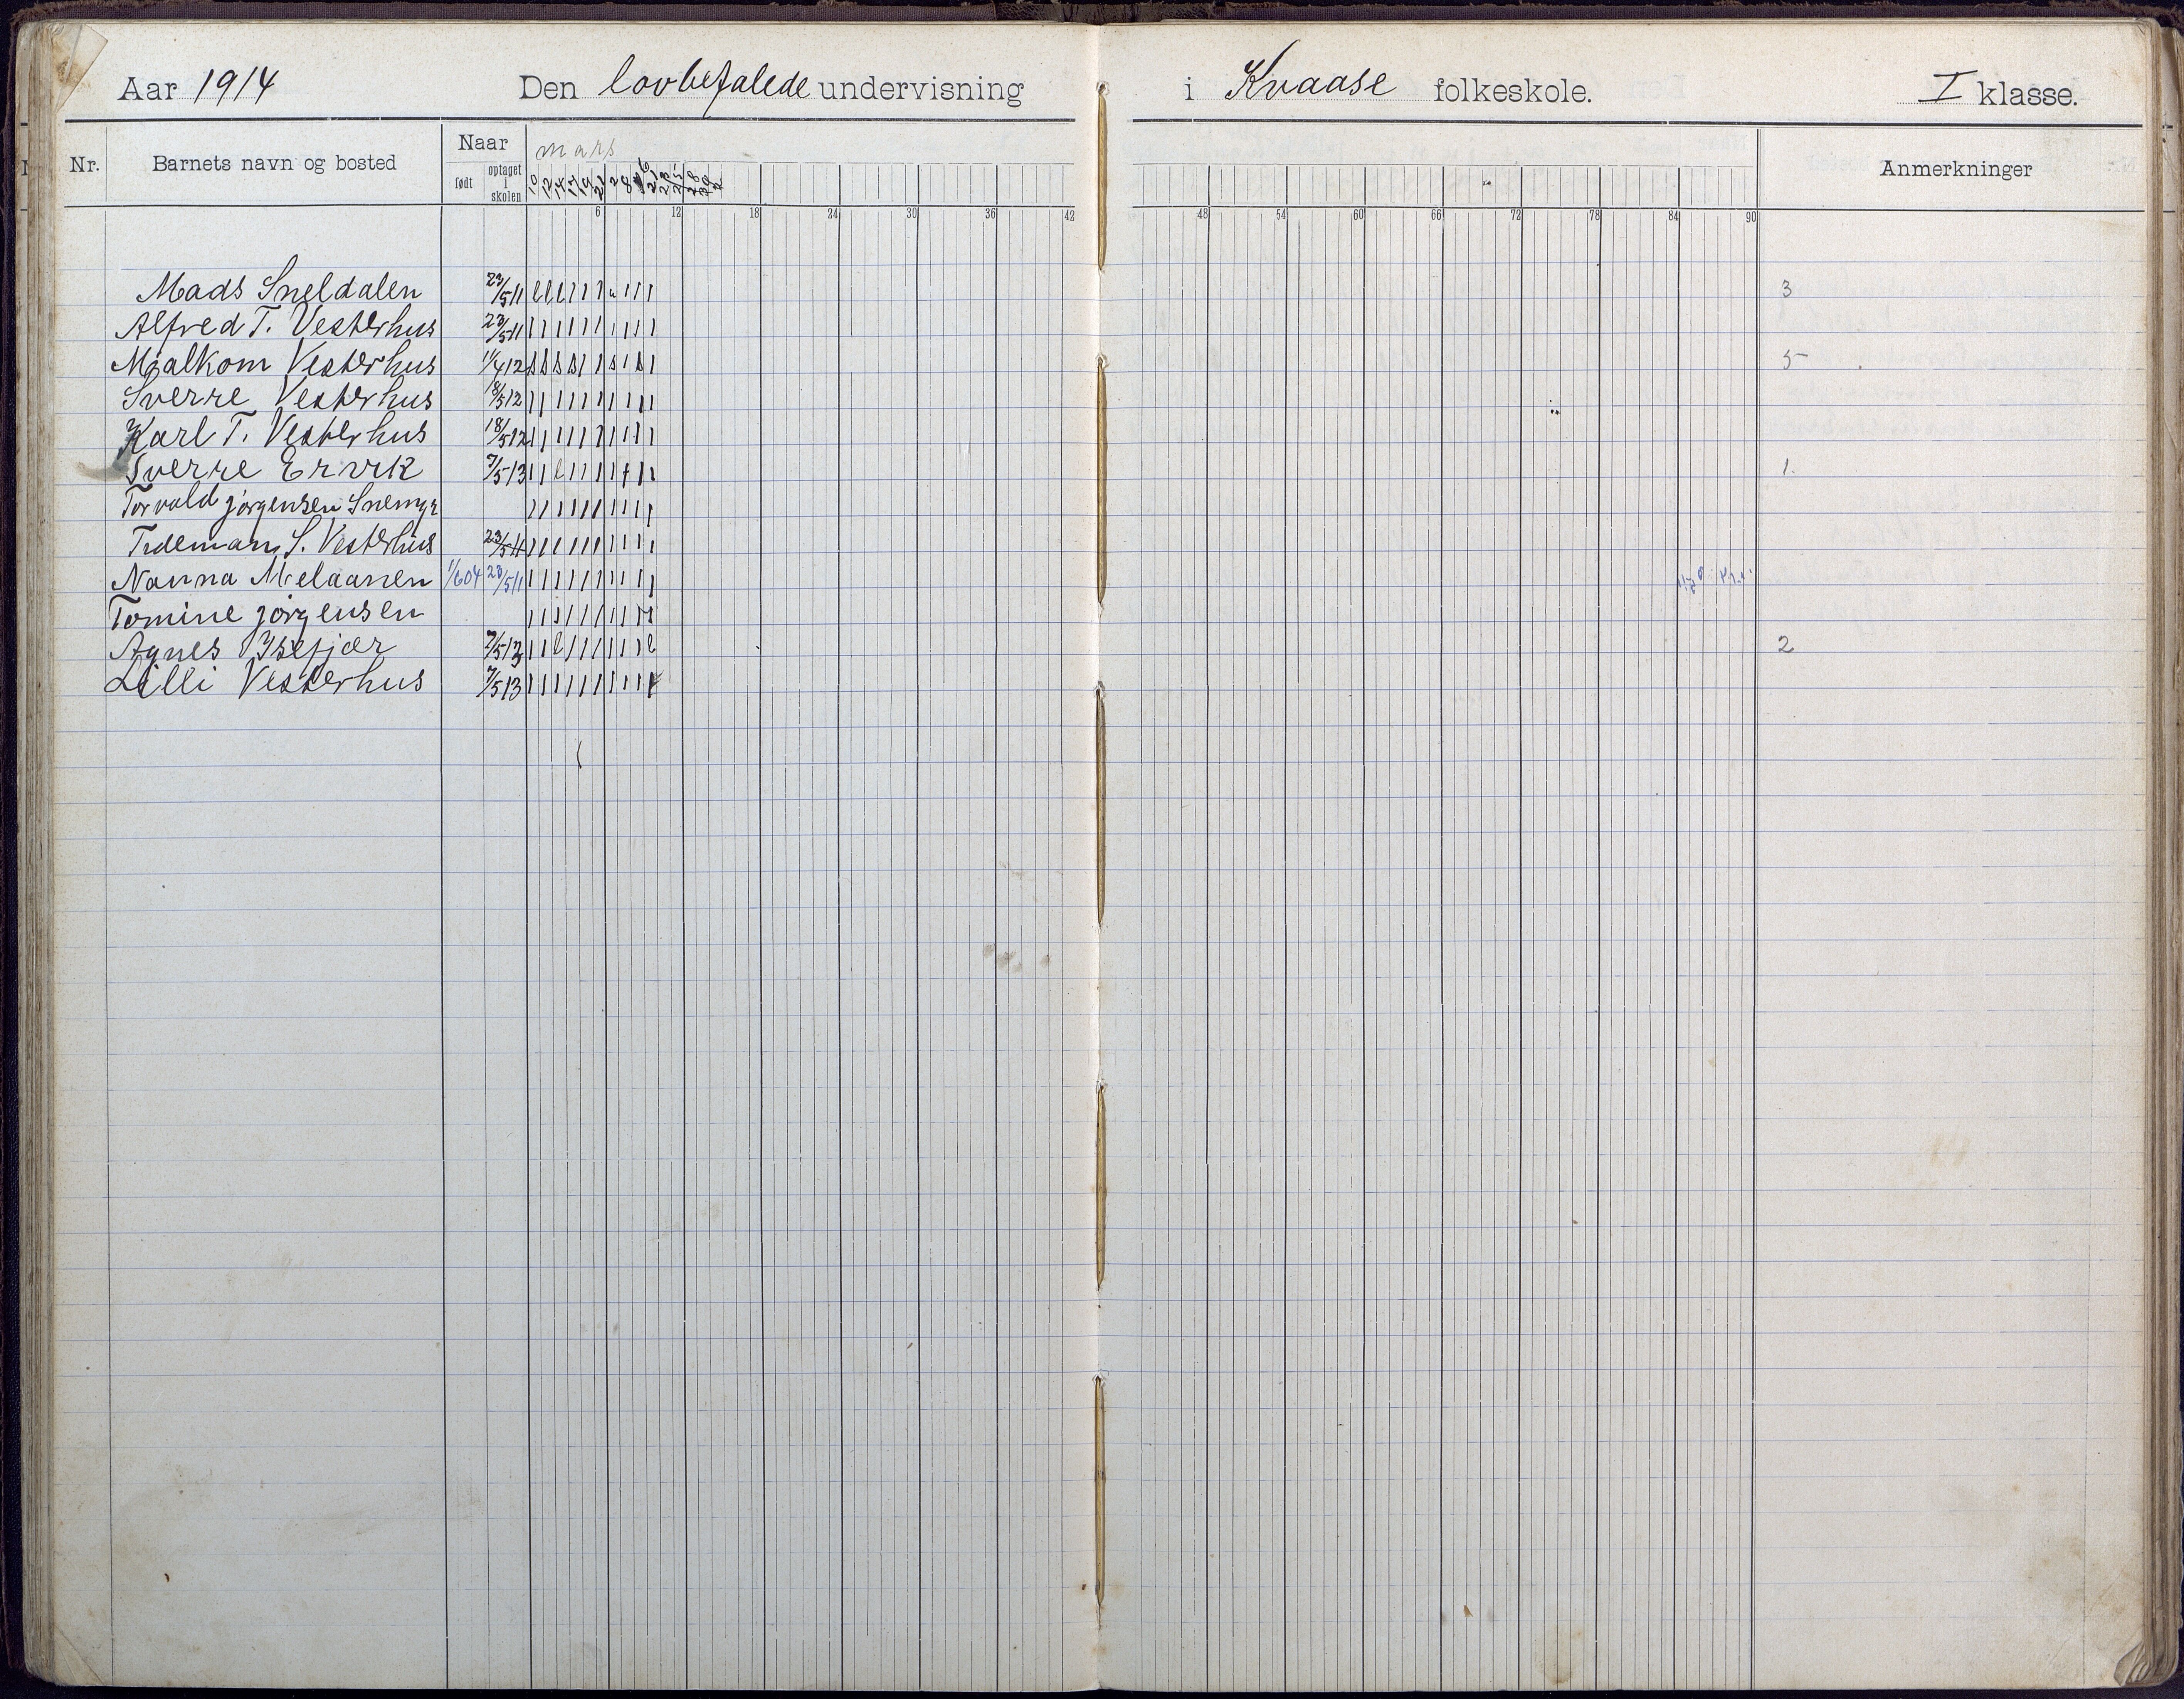 Aar 1914 Den lovbefalede undervisning i Kvaase folkeskole. I klasse.
Nr. Barnets navn og bosted Naar Anmerkninger
født optaget i skolen
mars
6 12 18 24 30 36 42 48 54 60 66 72 78 84 90
Mads Sneldalen 23/5 11 3
Alfred T. Vesterhus 23/5 11
Mjalkom Vesterhus 11/4 12 5
Sverre Vesterhus 18/5 12
Karl T. Vesterhus 18/5 12
Sverre Ervik 7/5 13 1.
Torvald Jørgensen
Tidemann S. Vesterhus 23/5 11
Nanna Melaanen 1/6 04 23/5 11
Tomine Jørgensen
Agnes Ysefjær 7/5 13 2
Lilli Vesterhus 7/5 13